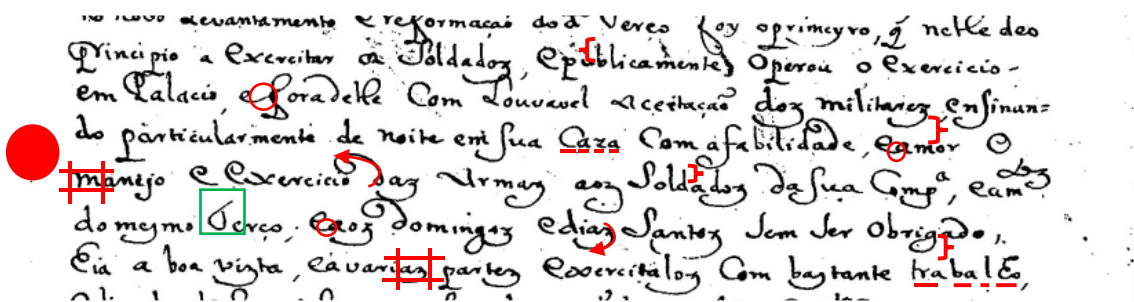 no novo Levantamento e reformação do dº Terço foy o primeyro, q̃ nelle deo
Principio a exercitar os Soldados, e publicamente Operou o exercicio
em Palacio, e fora delle Com Louvavel aceitação dos militares, ensinan=
do particularmente de noite em sua Caza Com afabilidade, e amor O
manejo e Exercicio das Armas aos Soldados da sua Compª, e aos
do mesmo Terço, e aos domingos e dias Santos sem ser Obrigado,
Eia a boa vizta, e a varias partes exercitalos Com bastante